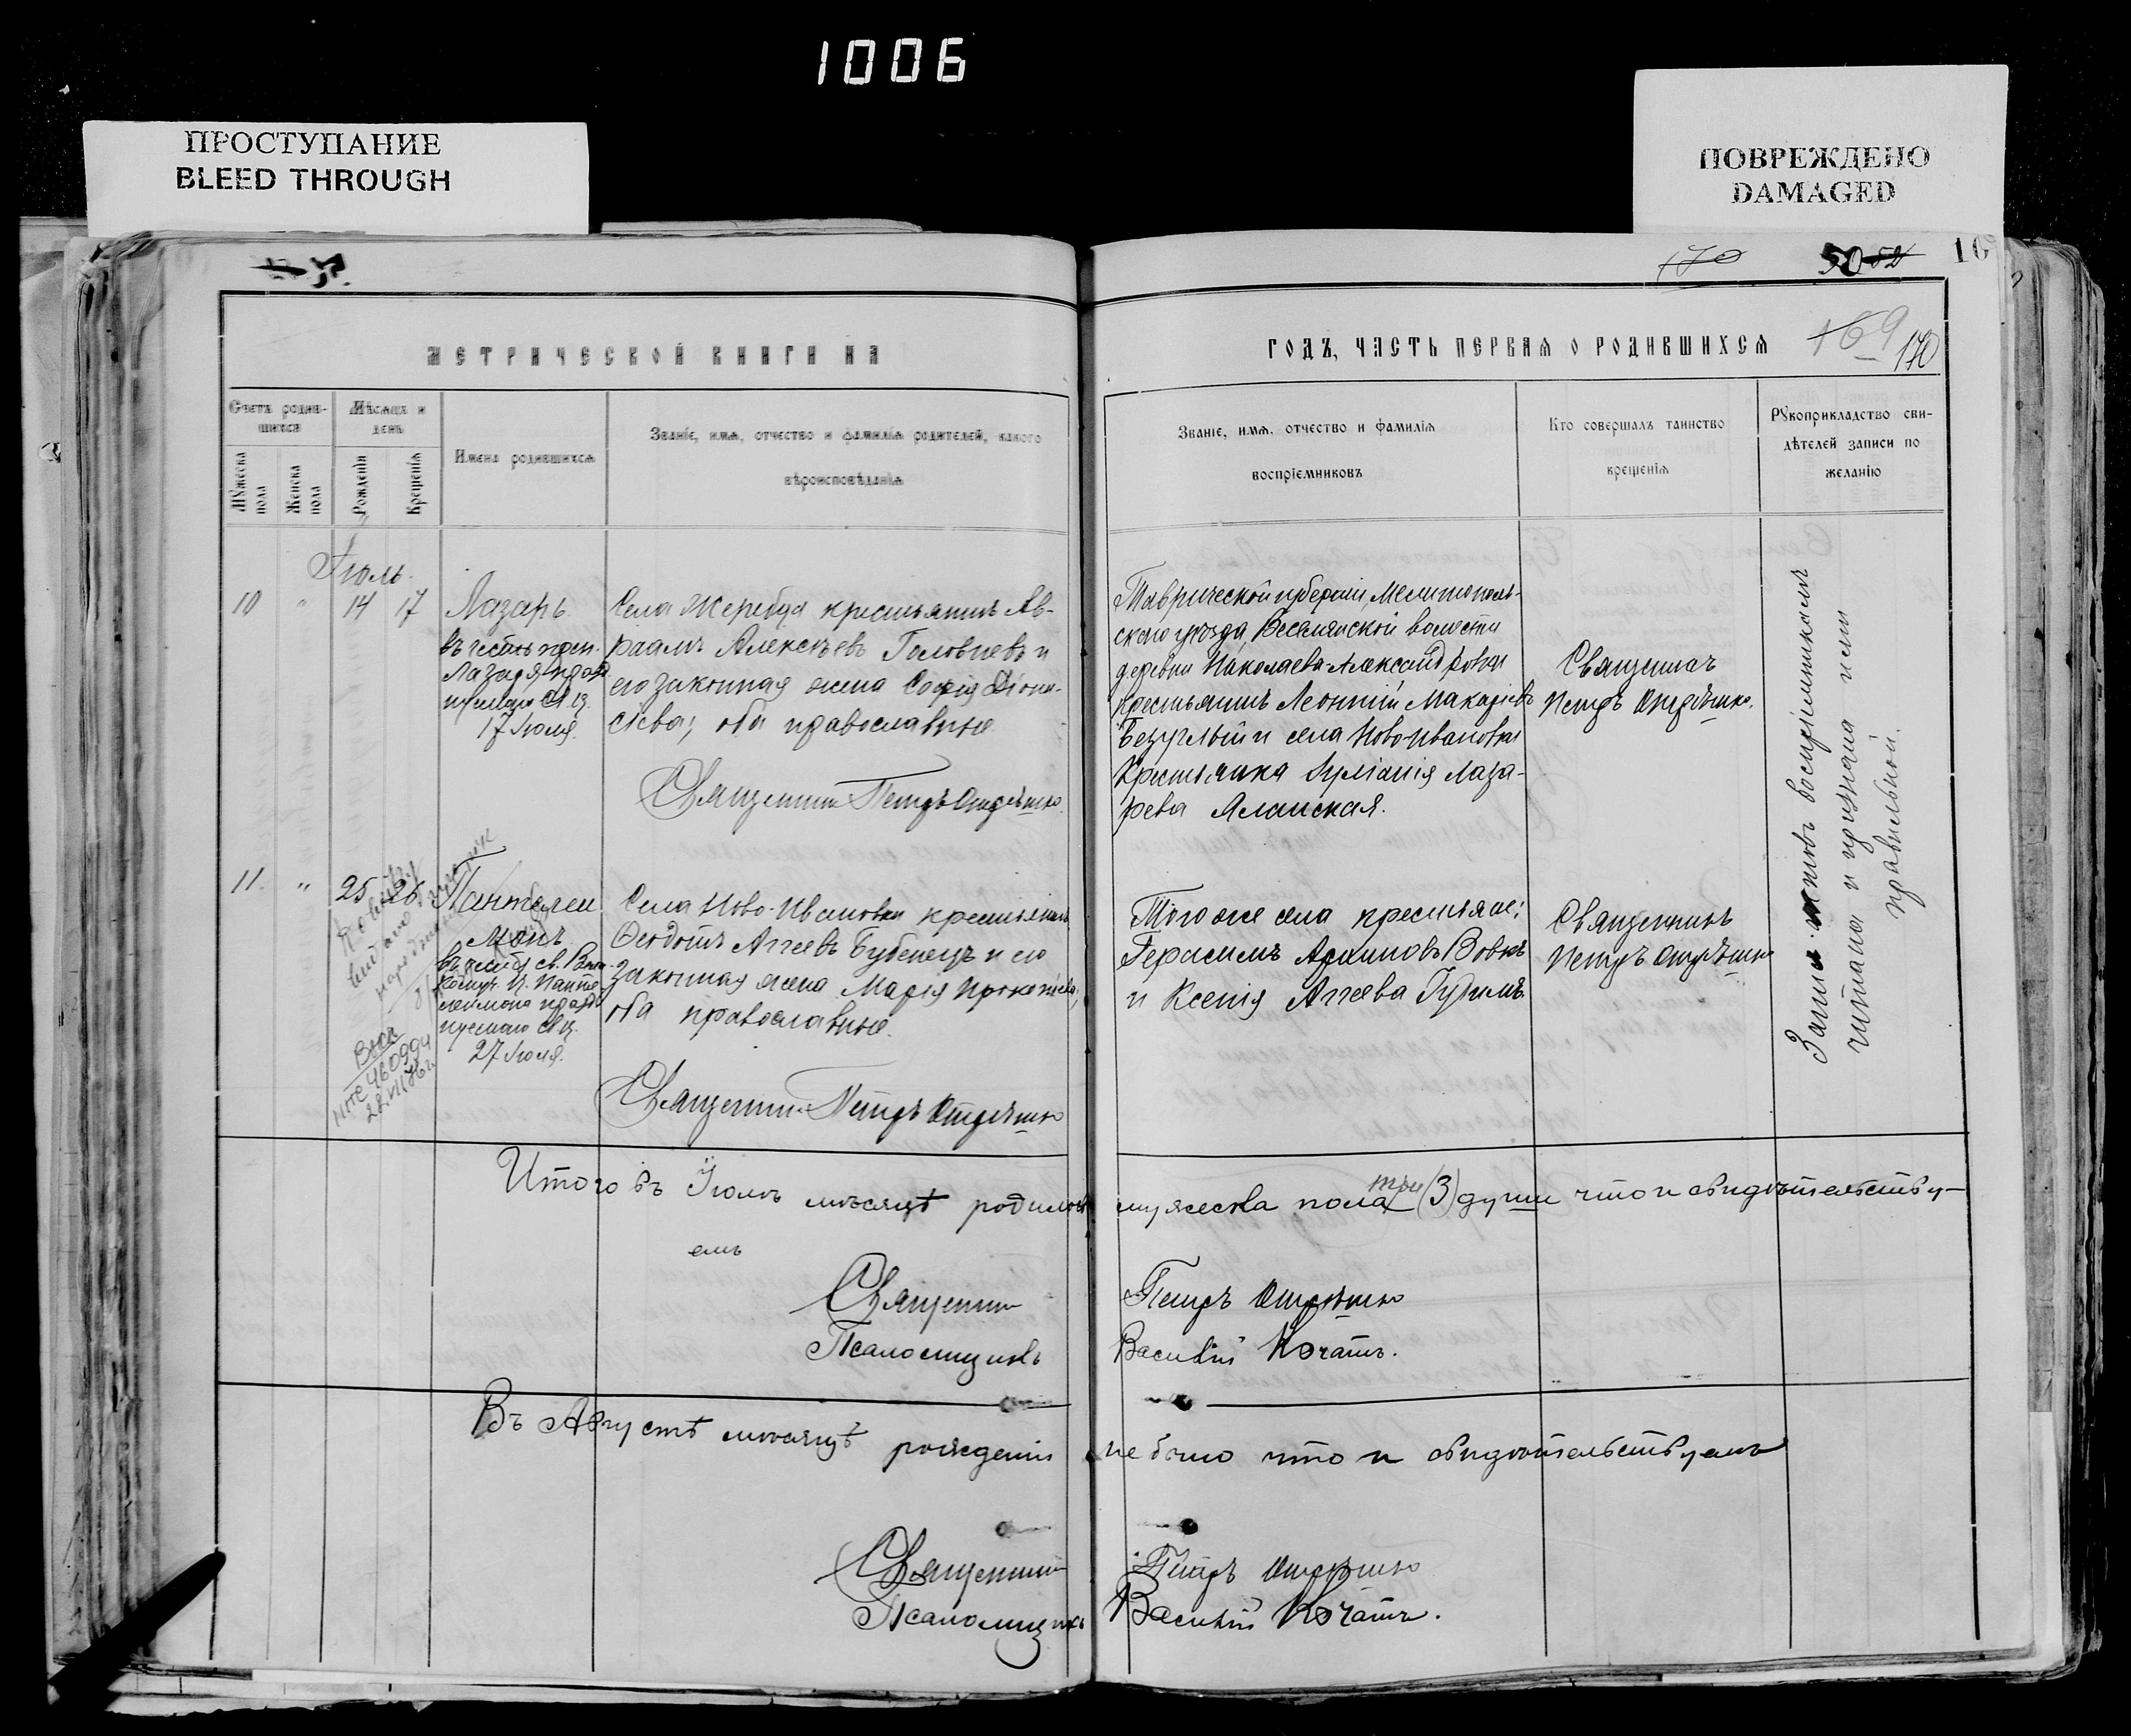 1006
ПРОСТУПАНИЕ
BLEED THROUGH
ПОВРЕЖДЕНО
DAMAGED
170
50 52
169
170
МЕТРИЧЕСКОЙ КНИГИ НА
ГОДЪ, ЧАСТЬ ПЕРВАЯ О РОДИВШИХСЯ
Счетъ родив-
шихся
Мужеска
пола
Женска
пола
Мѣсяцъ и
день
Рожденія
Крещенія
Имена родившихся
Званіе, имя, отчество и фамилія родителей, какого
вѣроисповѣданія
Званіе, имя, отчество и фамилія
воспріемниковъ
Кто совершалъ таинство
крещенія
Рукоприкладство сви-
дѣтелей записи по
желанію
Іюль.
10 " 14 17
Лазарь
въ честь преп.
Лазаря, празд
нуемаго Св. Ц.
17 Іюля.
Села Жеребца крестьянинъ Ав-
раамъ Алексѣевъ Головневъ и
его законная жена Софія Діони-
сіева; оба православные
Священникъ Петръ
Таврической губерніи, Мелитополь-
скаго уѣзда, Веселянской волости
деревни Николаева Александровки
крестьянинъ Леонтій Макаріевъ
Безуглый и села Ново-Ивановки
крестьянка Іуліанія Лаза-
рева
Священникъ
Петръ
11. " 25 26
Пантелеи
монъ
въ честь св. Вели-
комуч. Ц. Панте-
леимона праздн
нуемаго Св Ц.
27 Іюля.
460994
Села Ново-Ивановки крестьянинъ
Ѳеодотъ Аггеевъ Бубенецъ и его
законная жена Марія Прокопіева,
оба православные.
Священникъ Петръ
Того же села крестьяне:
Герасимъ Архиповъ Вовкъ
и Ксенія Аггеева
Священникъ
Петръ
воспріемникомъ
читана и признана имъ
правильной.
Итого въ Іюлѣ мѣсяцѣ родилось мужеска пола три (3) души что и свидѣтельству-
емъ
Священникъ Петръ
Псаломщикъ Василій Кочатъ.
Въ Августѣ мѣсяцѣ рожденій не было что и свидѣтельствуемъ
Священникъ Петръ
Псаломщикъ Василій Кочатъ.